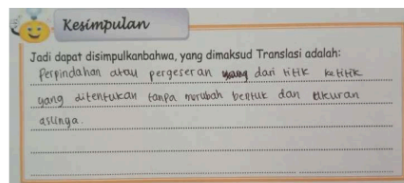 Kesimpulan
Jadi dapat disimpulkanbahwa, yang dimaksud Translasi adalah:
Perpindahan atau pergeseran yang dari titik ketitik
yang ditentukan tanpa merubah bentuk dan ukuran
aslinya.